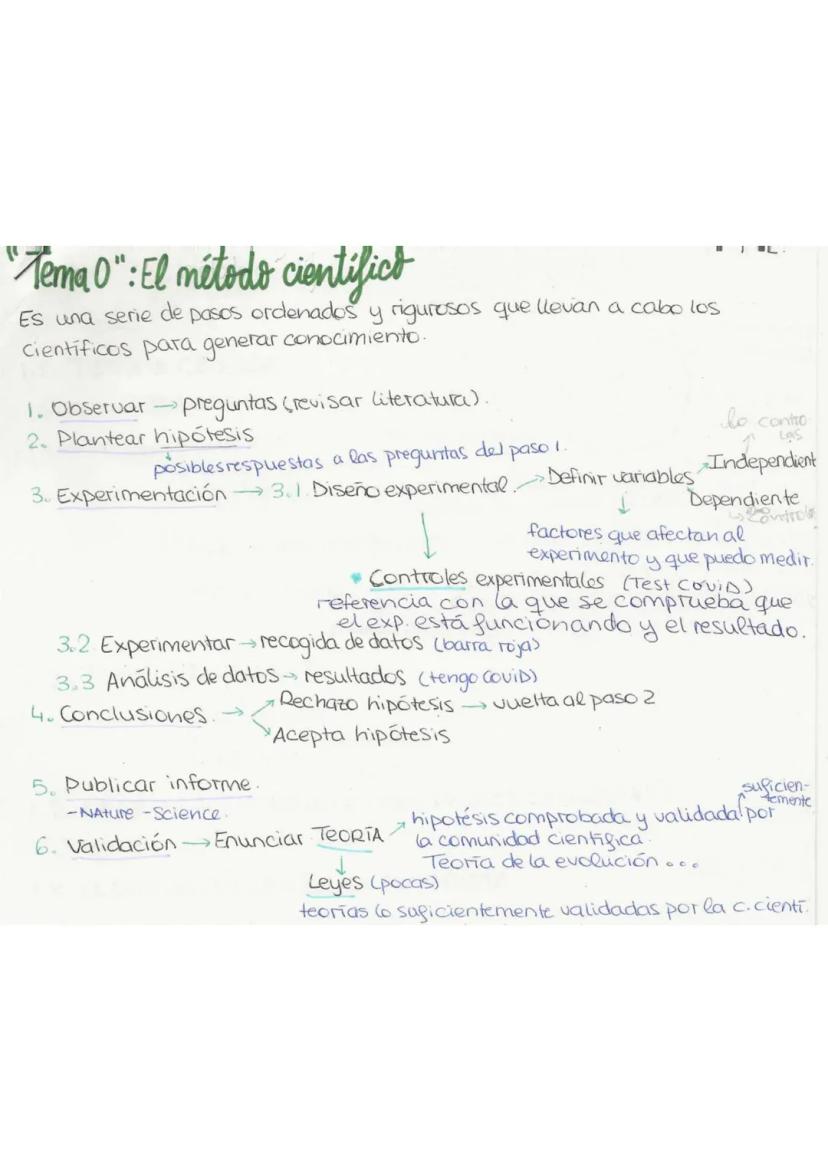 "Tema 0": El método científico
Es una serie de pasos ordenados y rigurosos que llevan a cabo los
científicos para generar conocimiento.
1. Observar → preguntas (revisar literatura).
2. Plantear hipótesis
posibles respuestas a las preguntas del paso 1.
3. Experimentación → 3.1. Diseño experimental. → Definir variables
lo contro
las
Independient
Dependiente
factores que afectan al
experimento y que puedo medir.
Controles experimentales (Test COVID)
referencia con la que se comprueba que
el exp. está funcionando y el resultado.
3.2 Experimentar → recogida de datos (barra roja)
3.3 Análisis de datos → resultados (tengo COVID)
4. Conclusiones. → Rechazo hipótesis → vuelta al paso 2
Acepta hipótesis
5. Publicar informe.
- NAture - Science.
6. Validación → Enunciar TEORÍA → hipotésis comprobada y validada por
suficien-
temente
la comunidad científica.
Teoría de la evolución...
Leyes (pocas)
teorías lo suficientemente validadas por la c. cientí.